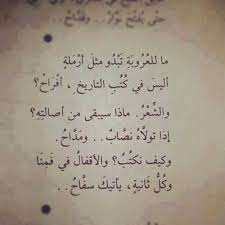 حتى يفتح نوار.. وقداح
ما للعُروبَةِ تَبْدُو مثلَ أرْمَلةٍ
أليسَ في كُتُبِ التاريخِ، أفْراحُ؟
والشِّعْرُ. ماذا سيبقى من أصالتِهِ؟
إذا تولاَّهُ نصَّابٌ.. ومَدَّاحُ
وكيف نكتُبُ؟ والأقفالُ في فَمِنَا
وكُلُّ ثانيةٍ، يأتيكَ سفَّاحُ..